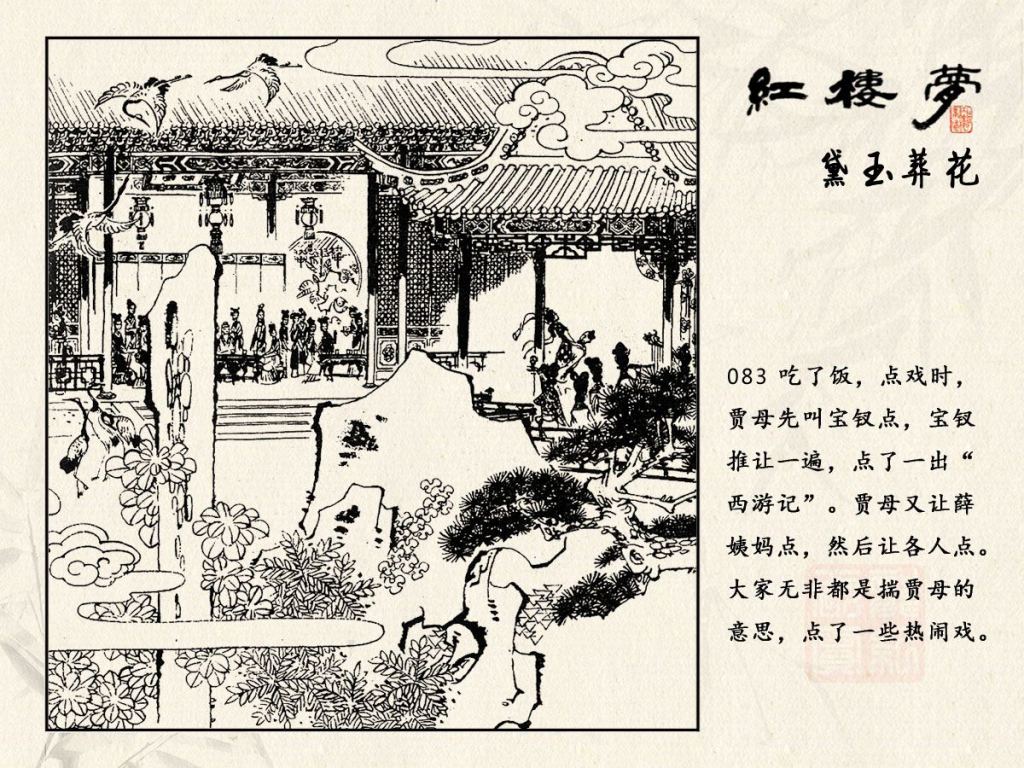 紅樓夢
黛玉葬花
083 吃了饭，点戏时，
贾母先叫宝钗点，宝钗
推让一遍，点了一出“
西游记”。贾母又让薛
姨妈点，然后让各人点。
大家无非都是揣贾母的
意思，点了一些热闹戏。